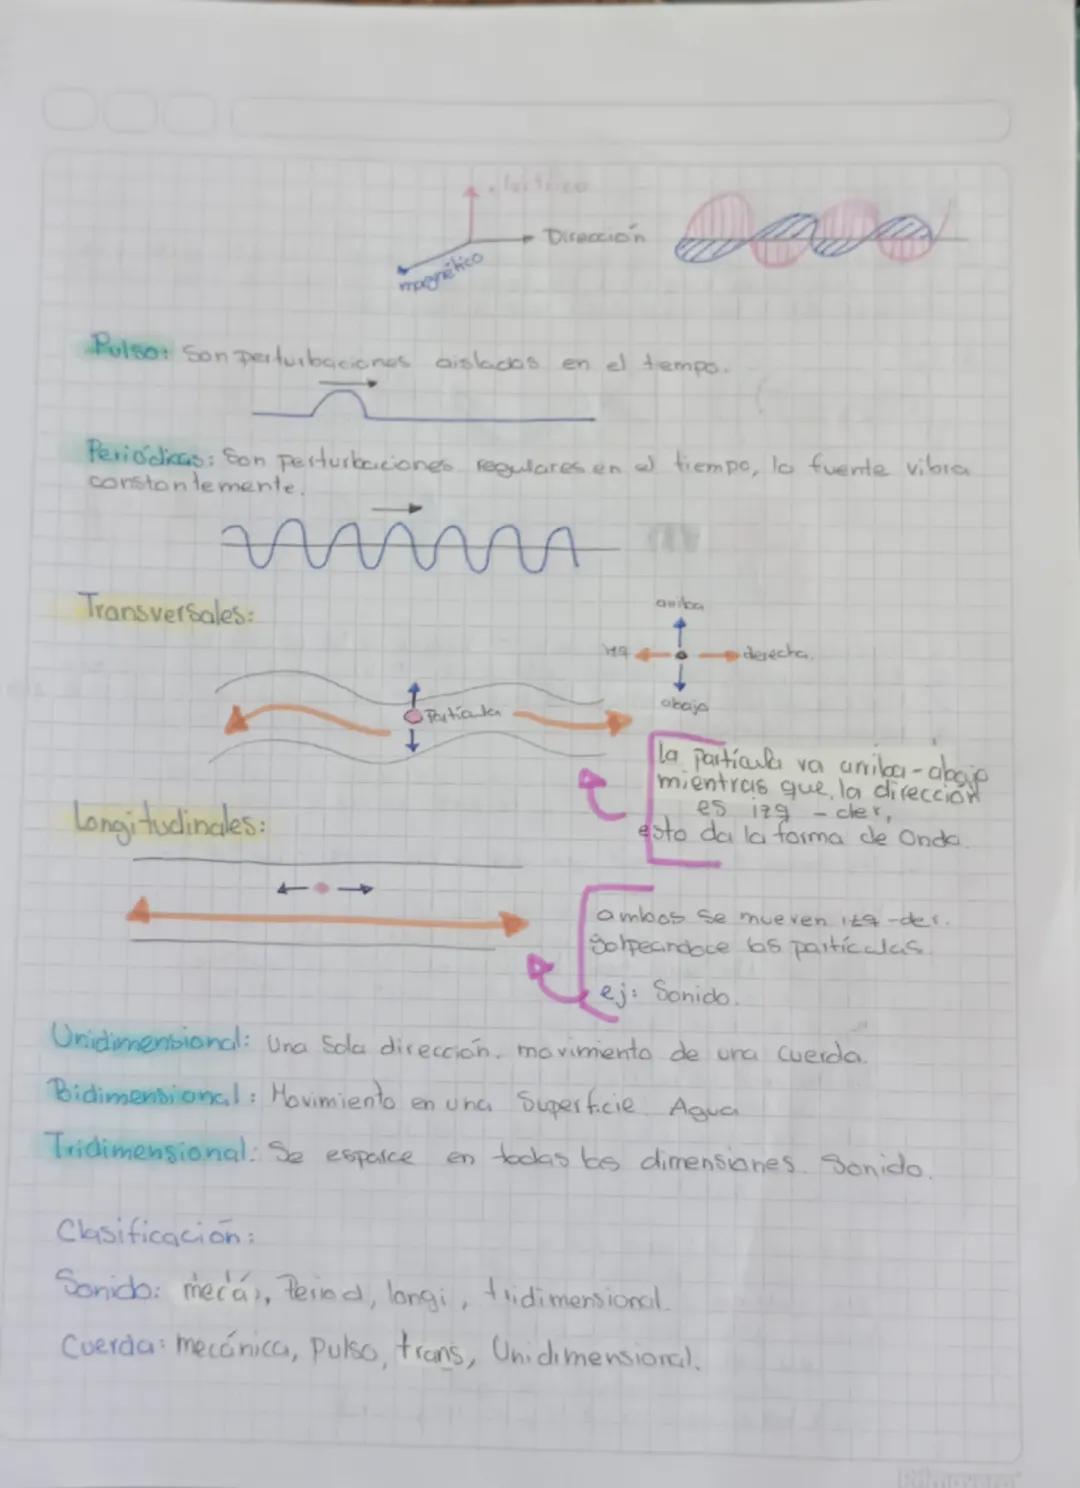 eléctrico
Dirección
magnético
Pulso: Son perturbaciones aisladas en el tempo.
Periódicas: Son perturbaciones regulares en el tiempo, la fuente vibra
constantemente.
Transversales:
arriba
izq
derecha.
abajo
Partícula
la partícula va arriba-abajo
mientras que la dirección
es izq - der,
esto da la forma de Onda.
Longitudinales:
ambos se mueven izq-der.
golpeandoce las partículas.
ej: Sonido.
Unidimensional: Una Sola dirección, movimiento de una cuerda.
Bidimensional: Movimiento en una Superficie Agua
Tridimensional: Se esparce en todas las dimensiones. Sonido.
Clasificación:
Sonido: Period, longi, tridimensional.
Cuerda: mecánica, Pulso, trans, Unidimensional.